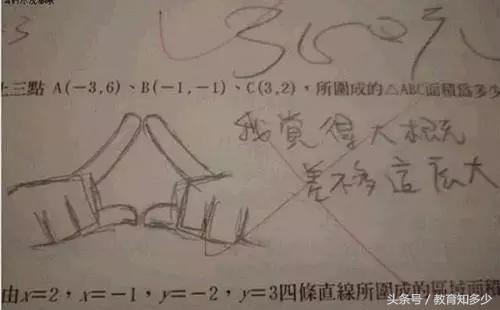 -3
上三點 A(-3,6)、B(-1,-1)、C(3,2)，所圍成的△ABC面積為多少
我覺得大概
差不多這么大
由x=2，x=-1，y=-2，y=3四條直線所圍成的區域面積
头条号 / 教育知多少